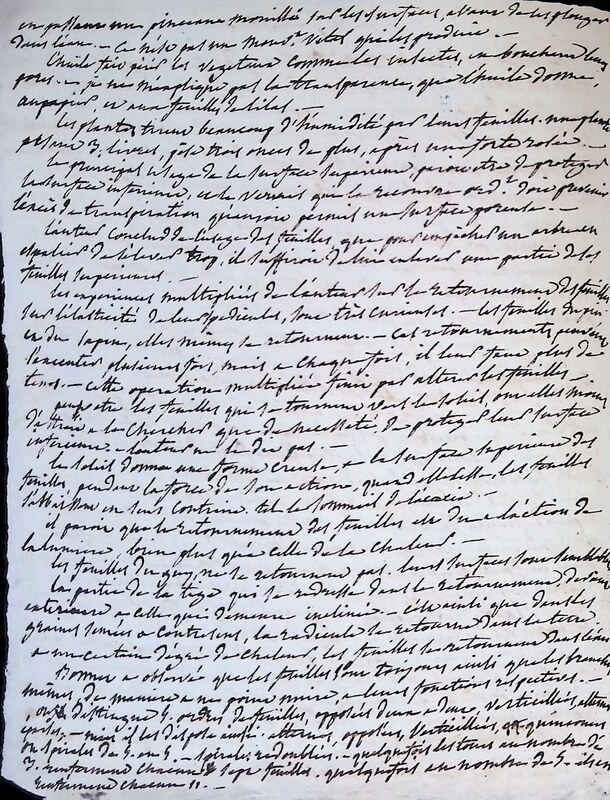 en passant un pinceau mouillé sur les surfaces, avant de les plonger
dans l'eau. — Ce n'est pas un mouvt vital qui les produit. —
L'huile fait périr les végétaux comme les insectes, en bouchant leurs
pores. — je ne m'explique pas la transparence, que l'huile donne,
au papier, et aux feuilles de lilas. —
Les plantes tirent beaucoup d'humidité par leurs feuilles. une plante
pesant 3 livres, pèse trois onces de plus, après une forte rosée. —
Le principal usage de la surface supérieure, peut être de protéger
la surface inférieure, et le vernis que la recouvre ordt doit prévenir
l'excès de transpiration qu'auroit permis une surface poreuse. —
L'auteur conclud de l'usage des feuilles, que pour empêcher un arbre en
espalier de s'élever trop, il suffiroit de lui enlever une partie de ses
feuilles supérieures. —
Les expériences multipliées de l'auteur sur le retournement des feuilles
sur l'élasticité de leurs pédicules, sont très curieuses. — les feuilles du pin
et du sapin, elles mêmes se retournent. — Ces retournements peuvent
s'exécuter plusieurs fois, mais a chaque fois, il leur faut plus de
tems. — Cette opération multipliée finit par altérer les feuilles. —
peut être les feuilles qui se tournent vers le soleil, ont elles moins
d'attrait a le chercher que de nécessité, de protéger leur surface
inférieure. — l'auteur ne le dit pas. —
Le soleil donne une forme creuse, a la surface supérieure des
feuilles, pendant la force de son action, quand elle cesse, les feuilles
s'abaissent en sens contraire. tel le sommeil de l'acacia. —
il paroit que le retournement des feuilles est du a l'action de
la lumière, bien plus qu'a celle de la chaleur. —
Les feuilles du guy, ne se retournent pas. leurs surfaces sont semblables
La partie de la tige qui se redresse dans le retournement devient
extérieure a celle qui demeure inclinée. — c'est ainsi que dans les
graines semées a contresens, la radicule se retourne dans la terre
a un certain degré de chaleur, les feuilles se retournent dans l'eau
Bonnet a observé que les feuilles sont toujours ainsi que les branches
mêmes de manière a ne point nuire, a leurs fonctions respectives. —
on distingue 5 ordres de feuilles, opposées deux a deux, verticillées, alternes
— mais il les dispose ainsi. alternes, opposées, verticillées, quinconces
ou spirales de 5 en 5. — spirales redoublées. — quelquefois les tours au nombre de
3. renferment chacun 7 feuilles. quelquefois au nombre de 5. ils en
renferment chacun 11. —